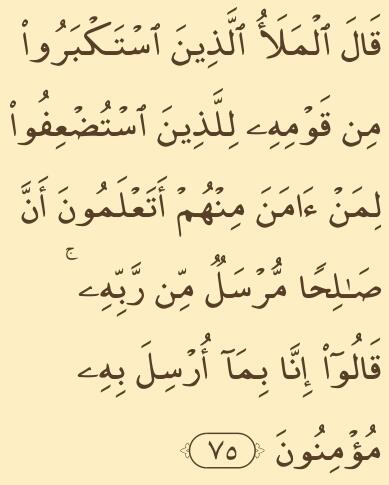 قَالَ ٱلْمَلَأُ ٱلَّذِينَ ٱسْتَكْبَرُوا۟
مِن قَوْمِهِۦ لِلَّذِينَ ٱسْتُضْعِفُوا۟
لِمَنْ ءَامَنَ مِنْهُمْ أَتَعْلَمُونَ أَنَّ
صَـٰلِحًا مُّرْسَلٌ مِّن رَّبِّهِۦ ۚ
قَالُوٓا۟ إِنَّا بِمَآ أُرْسِلَ بِهِۦ
مُؤْمِنُونَ ٧٥